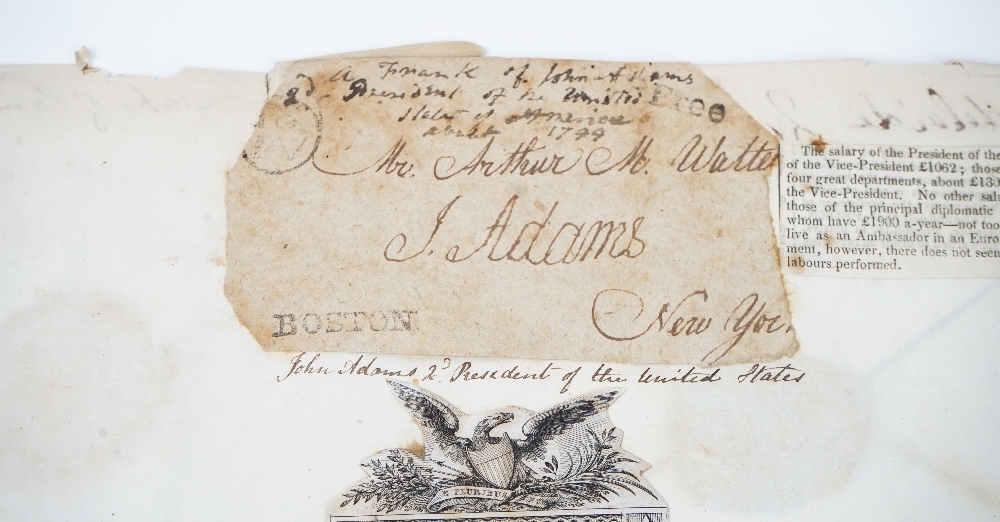 A Frank of John Adams
2d President of the United
States of America
about 1799
Free
Mr. Arthur M. Walte
J. Adams
BOSTON
New Yor
John Adams 2d President of the United States
E PLURIBUS
The salary of the President of the
of the Vice-President £1062; those
four great departments, about £130
the Vice-President. No other sal
those of the principal diplomatic
whom have £1900 a-year—not too
live as an Ambassador in an Euro
ment, however, there does not seem
labours performed.